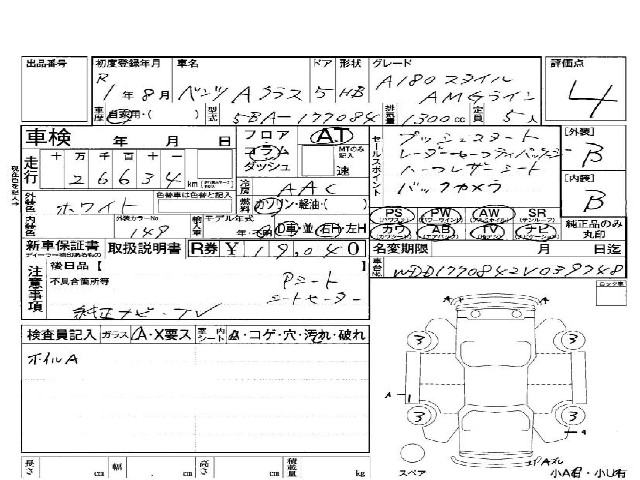 出品番号 初度登録年月 車名 ドア 形状 グレード 評価点
R 1年 8月 ベンツ Aクラス 5 HB A180 スタイル AMGライン 4
車歴 自家用・( ) 型式 5BA-177084 排気量 1,300 cc 定員 5人
車検 年 月 日 フロア コラム ダッシュ A.T MTのみ記入 速
セールスポイント プッシュスタート
レーダーセーフティパッケージ
ハーフレザーシート
バックカメラ
[外装] B
[内装] B
走行 十 万 千 百 十 一
2 6 6 3 4 km
冷房 AAC
外装色 ホワイト 色替車は色替と記入 燃料 ガソリン・軽油・( )
内装色 外装カラーNo 149 輸入車 モデル年式 年・不明 D車・並 右H・左H
PS PW AW SR
カワ AB TV ナビ
純正品のみ丸印
新車保証書 取扱説明書 R券 ¥ 19,040 名変期限 月 日迄
注意事項 後日品【
不具合箇所等
Pシート
シートヒーター
純正ナビ・TV
車台No. WDD1770842V039748
ロック車
検査員記入 ガラス A・X要ス 室内シート ・コゲ・穴・汚れ・破れ
ホイルA
3 3
A 1
3 3
スペア
小A有・小U有
長さ cm 幅 cm 高さ cm 積載量 kg